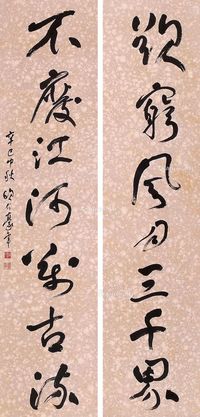 欲窮風月三千界
不廢江河萬古流
辛巳中秋